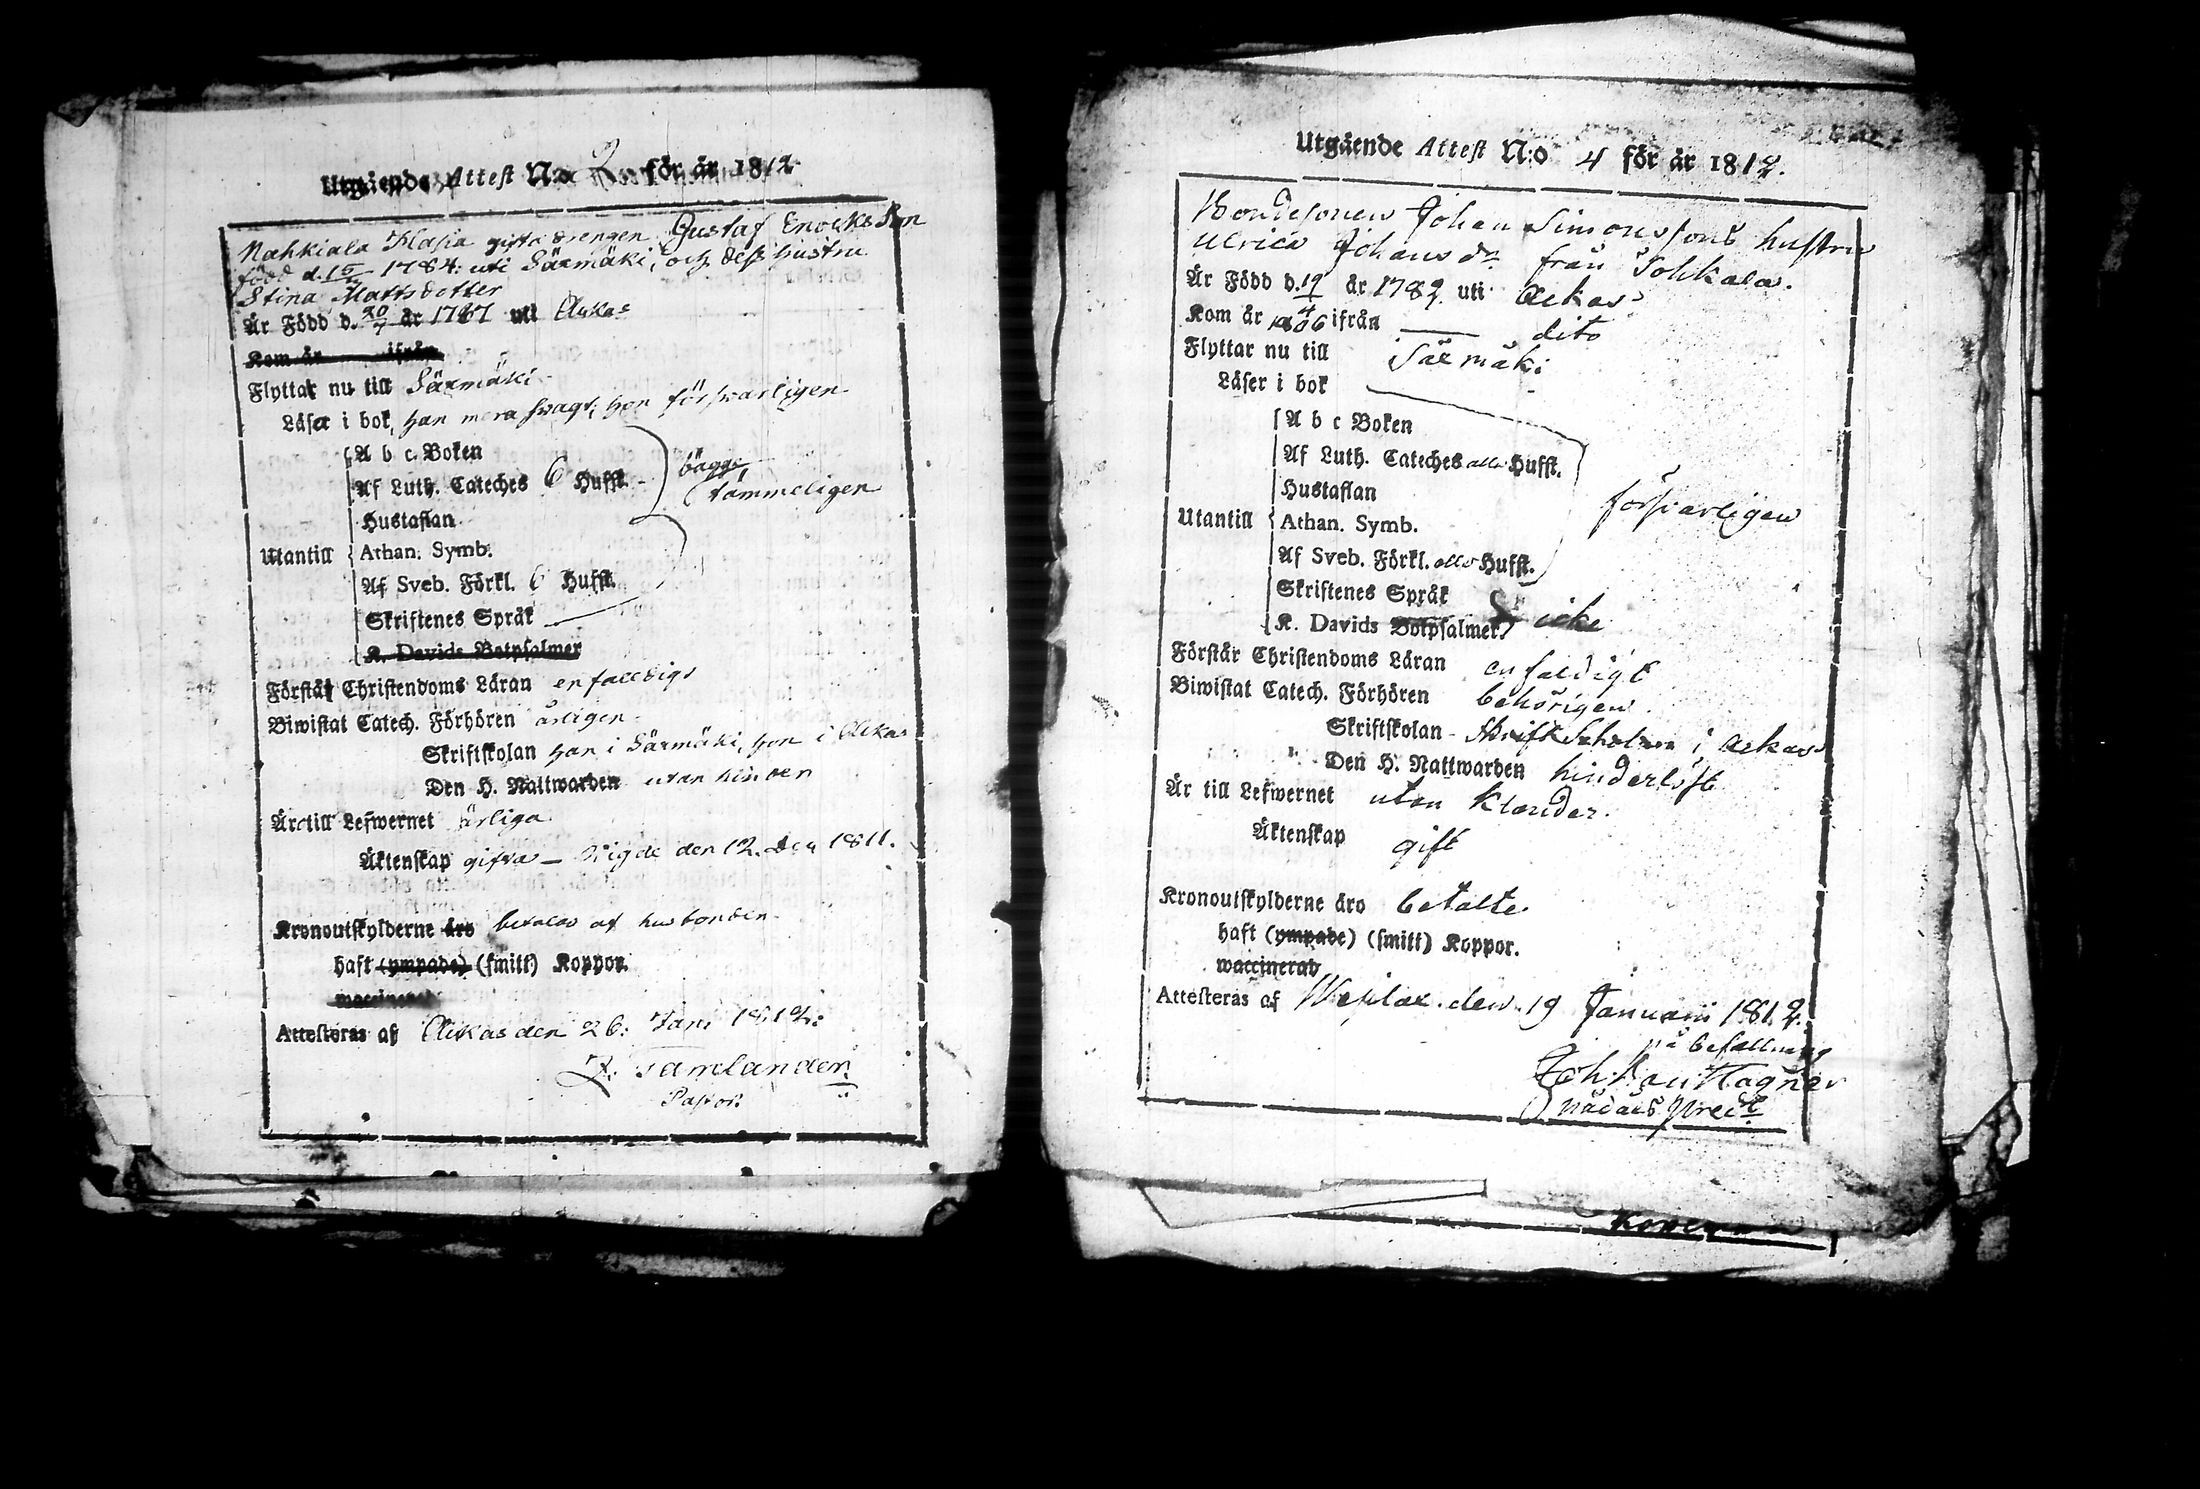 Utgående Attest N:o 2 för år 1812
Nahkiala Klasia gifta drengen Gustaf Enocksson
född d. 15 1784: uti Säxmäki, och dess hustru
Stina Mattsdotter
Är Född d. 20/7 år 1787 uti Ackas
Kom år ifrån
Flyttar nu till Säxmäki
Läser i bok, han mera svagt, hon försvarligen
A b c Boken
Af Luth. Cateches 6 Hufst.
bägge
tämmeligen
Hustaflan
Utantill
Athan. Symb.
Af Sveb. Förkl. 6 Hufst.
Skriftenes Språk
K. Davids Botpsalmer
Förstår Christendoms Läran enfalldigt
Biwistat Catech. Förhören årligen
Skriftskolan han i Säxmäki, hon i Ackas
Den H. Nattwarden utan hinder
Är till Lefwernet ärliga
Äktenskap gifta – Vigde den 12. Dec 1811.
Kronoutskylderne äro betalas af husbonden
haft (ympade) (smitt) Koppor.
waccinerad
Attesteras af Ackas den 26: Jan: 1812:
Z. Tamlander
Pastor
Utgående Attest N:o 4 för år 1812.
Bondesonen Johan Simonssons hustru
Ulrica Johansdr från Tohkala.
Är Född d. 19 år 1782 uti Ackas
Kom år 1806 ifrån dito
Flyttar nu till Säxmäki
Läser i bok
A b c Boken
Af Luth. Cateches alla Hufst.
Hustaflan
försvarligen
Utantill
Athan. Symb.
Af Sveb. Förkl. alla Hufst.
Skriftenes Språk
K. Davids Botpsalmer icke
Förstår Christendoms Läran enfaldigt
Biwistat Catech. Förhören behörigen
Skriftskolan Skriftscholan i Ackas
Den H. Nattwarden hinderlöst
Är till Lefwernet utan klander.
Äktenskap gift
Kronoutskylderne äro betalte
haft (ympade) (smitt) Koppor.
waccinerad
Attesteras af Wesilax den 19 Januarii 1812.
på befallning
Joh: Hagner
Nådårs Pred: